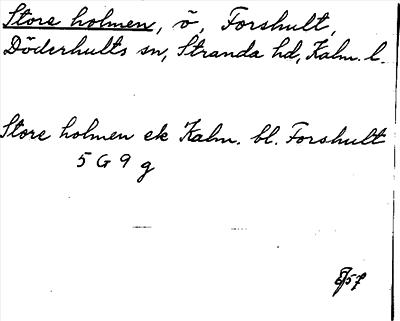 Store holmen, ö, Forshult,
Döderhults sn, Stranda hd, Kalm. l.
Store holmen ek Kalm. bl. Forshult
5 G 9 g
57